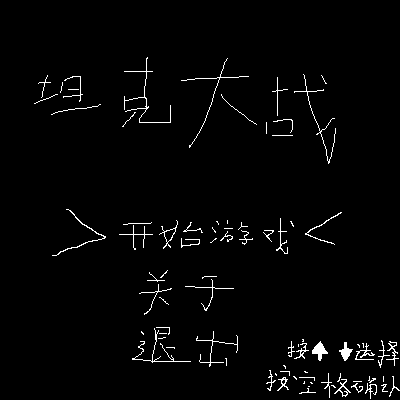 坦克大战
> 开始游戏 <
关于
退出
按↑↓选择
按空格确认